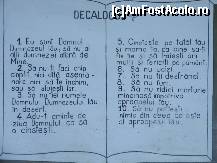 [ro.AmFostAcolo.ro]
DECALOGUL
1. Eu sunt Domnul
Dumnezeul tău, să nu ai
alți dumnezei afară de
Mine.
2. Să nu-ți faci chip
cioplit, nici altă asemă-
nare, nici să te închini
lor, nici să le slujești lor.
3. Să nu iei numele
Domnului Dumnezeului tău
în deșert.
4. Adu-ți aminte de
ziua Domnului, ca să o
cinstești.
5. Cinstește pe tatăl tău
și mama ta, ca bine să-ți
fie și să trăiești ani
mulți și fericiți pe pământ.
6. Să nu ucizi.
7. Să nu fii desfrânat.
8. Să nu furi.
9. Să nu ridici mărturie
mincinoasă împotriva
aproapelui tău.
10. Să nu poftești
nimic din ceea ce este
al aproapelui tău.